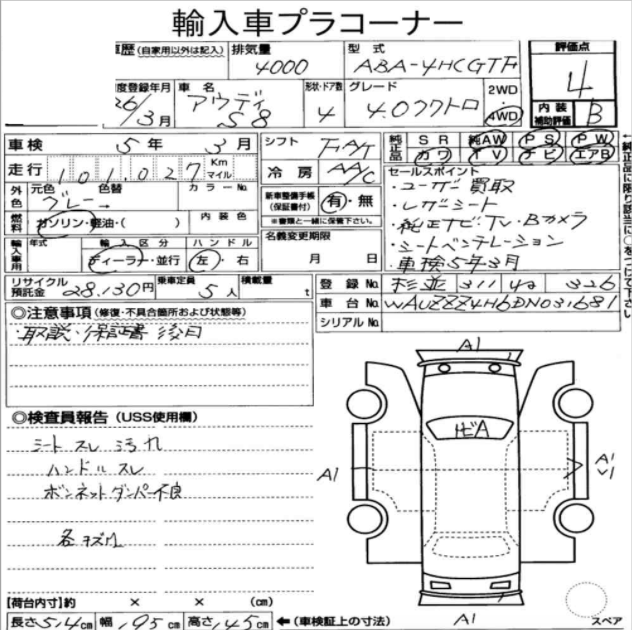 輸入車プラコーナー
車歴 (自家用以外は記入) 排気量 4000 型式 ABA-4HCGTF 評価点 4
初度登録年月 26/3月 車名 アウディ S8 形状・ドア数 4 グレード 4.0クワトロ 2WD・4WD 内装補助評価 B
車検 5年3月 シフト F・A/T 純正品 SR 純AW PS PW
カワ TV ナビ エアB
走行 101,027 Km マイル 冷房 AA/C
セールスポイント
・ユーザー買取
・レザーシート
・純正ナビ・TV・Bカメラ
・シートベンチレーション
・車検5年3月
外色 元色 グレー 色替 → カラーNo.
燃料 ガソリン・軽油・( ) 内装色
新車整備手帳 (保証書付) 有・無
※書類と一緒に保管下さい。
輸入車用 年式 輸入区分 ディーラー・並行 ハンドル 左・右
名義変更期限 月 日
リサイクル預託金 28,130円 乗車定員 5人 積載量 t
登録No. 杉並 311 42 326
車台No. WAUZZZ4H6DN031681
シリアルNo.
←純正品についてのみ○をつけて下さい
◎注意事項(修復・不具合箇所および状態等)
・取説・保証書 後日
◎検査員報告(USS使用欄)
シート スレ 汚れ
ハンドル スレ
ボンネットダンパー不良
各キズ凹
A1
飛A
A1
A1
A1
スペア
【荷台内寸】約 × × (cm)
長さ514cm 幅195cm 高さ145cm ←(車検証上の寸法)